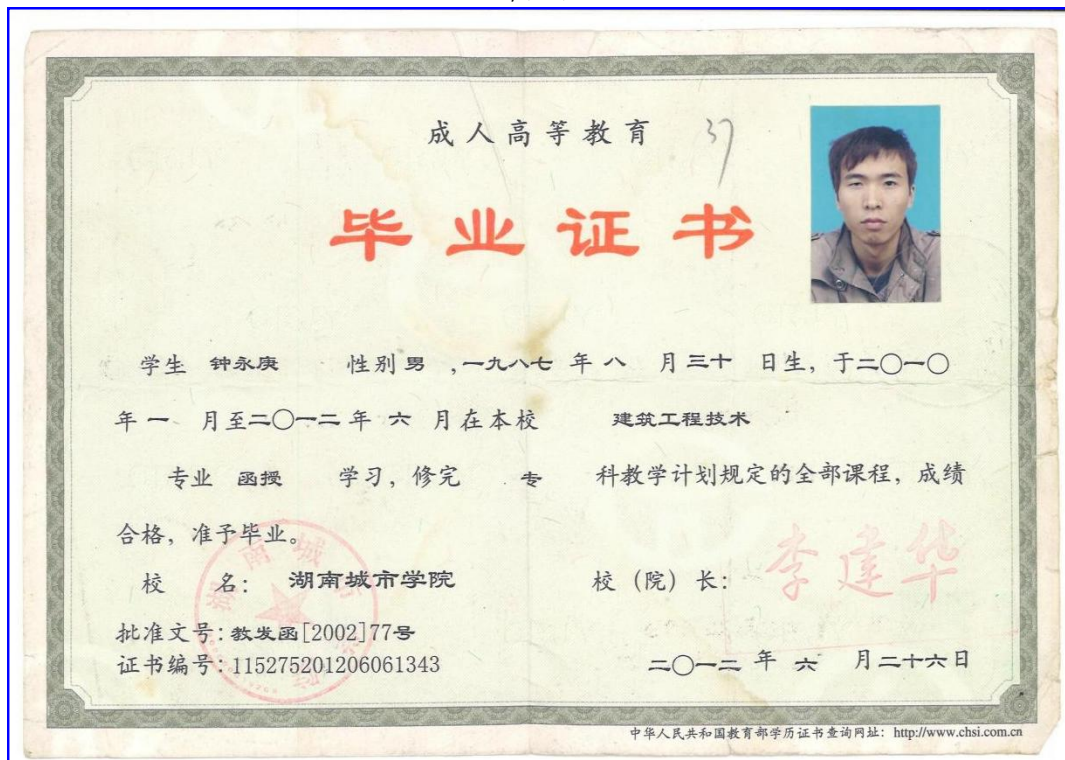 成人高等教育
37
毕业证书
学生 钟永庚 性别 男 ,一九八七 年 八 月 三十 日生, 于二〇一〇
年 一 月至二〇一二 年 六 月在本校 建筑工程技术
专业 函授 学习, 修完 专 科教学计划规定的全部课程, 成绩
合格, 准予毕业。
校 名: 湖南城市学院 校 (院) 长: 李建华
批准文号: 教发函[2002]77号
证书编号: 115275201206061343 二〇一二 年 六 月二十六日
中华人民共和国教育部学历证书查询网址: http://www.chsi.com.cn